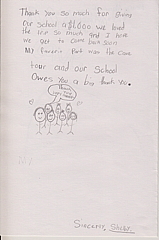 Thank you so much for giving
Our school a $1,000 we loved
the trip so much and I hope
we get to Come back soon
My favorite Part was the Cave
tour and our School
Owes you a big thank you.
Sincerly,